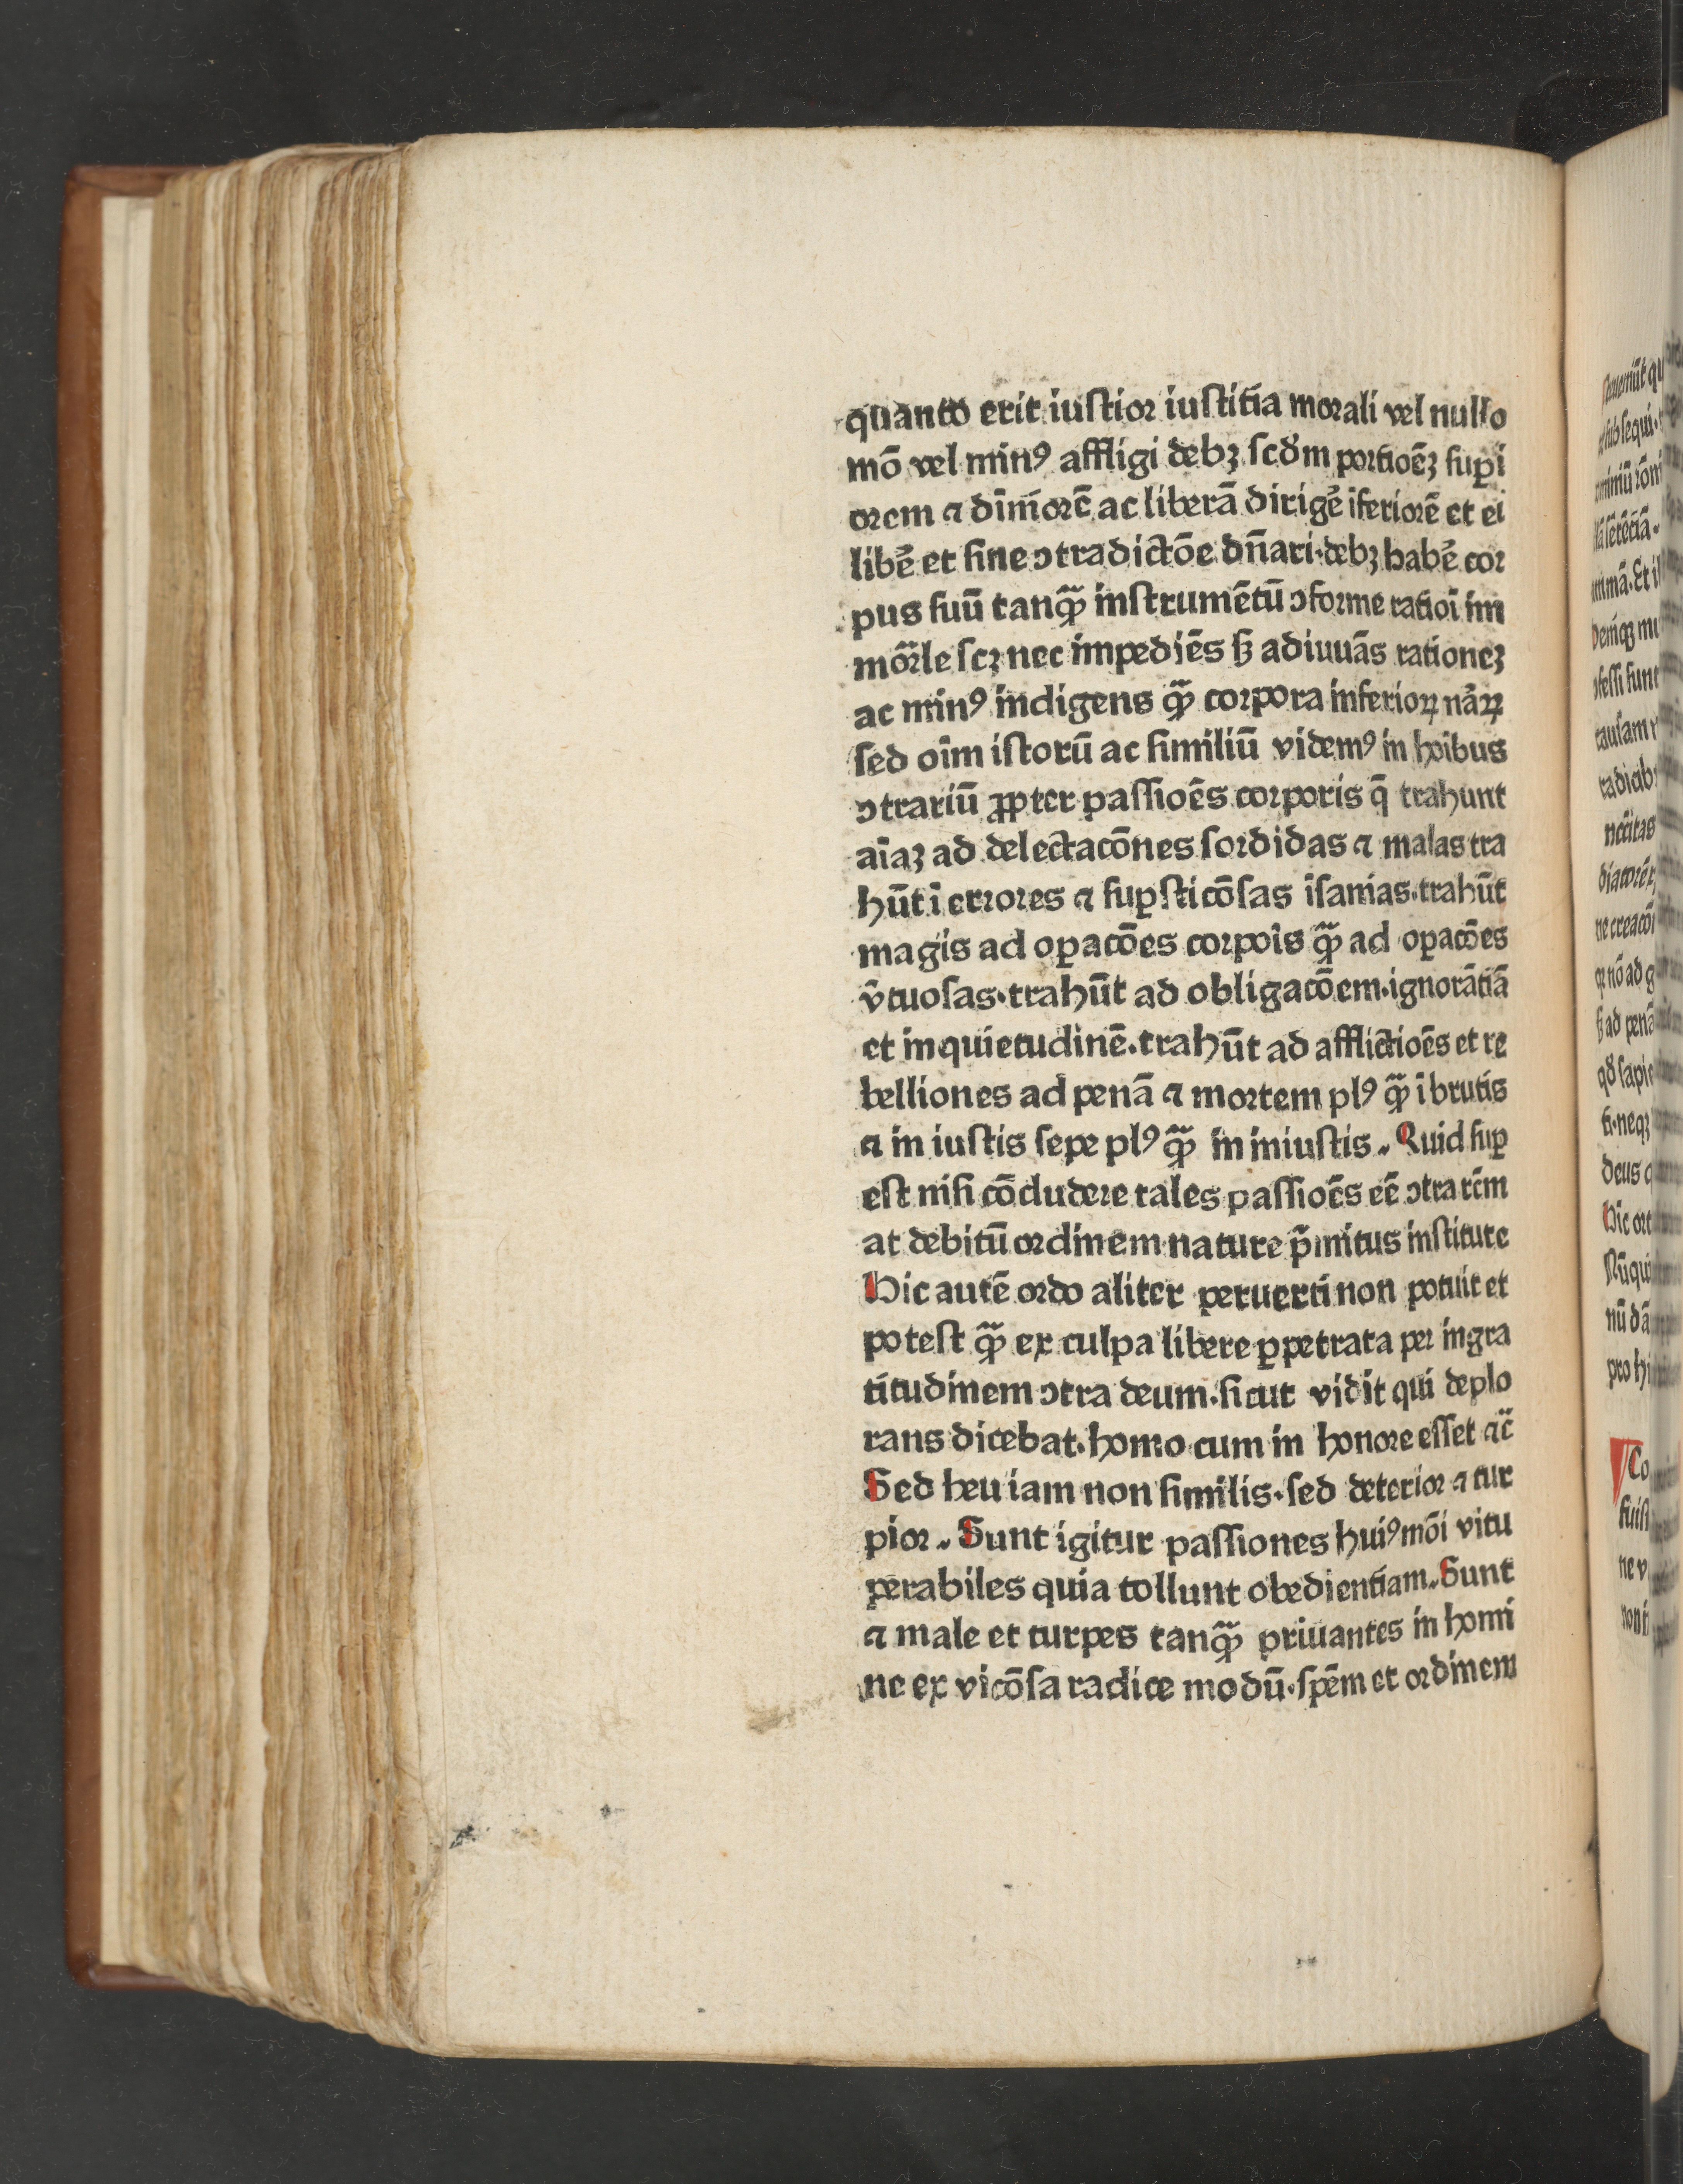 quanto erit iuſtior iuſtitīa morali vel nullo
mō vel minꝰ affligi debꝫ ſcd̄m portioēꝫ ſuꝑi
orem ⁊ dīmīorē ac liberā dirigē iferiorē et ei
libē et ſine ↄtradictōe dn̄ari·debꝫ habē cor
pus ſuū tanꝙ̄ inſtrumētū ↄforme ratioī im
mōrle ſcꝫ nec impediēs ſꝫ adiuuās rationeꝫ
ac minꝰ indigens ꝙ̄ corpora inferioꝝ nāꝝ
ſed oīm iſtorū ac ſimiliū videmꝰ in hoībus
ↄtrariū ꝓpter paſſioēs corporis q̄ trahunt
aīaꝫ ad delectacōnes ſordidas ⁊ malas tra
hūt ī errores ⁊ ſuꝑſticōſas īſanias·trahūt
magis ad oꝑacōes corpoīs ꝙ̄ ad oꝑacōes
v̄tuoſas·trahūt ad obligacōem·ignorātiā
et inquietudinē·trahūt ad afflictioēs et re
belliones ad penā ⁊ mortem plꝰ ꝙ̄ ī brutis
⁊ in iuſtis ſepe plꝰ ꝙ̄ in iniuſtis. Quid ſuꝑ
eſt niſi cōcludere tales paſſioēs eē ↄtra rēm
at debitū ordinem nature p̄mitus inſtitute
Hic autē ordo aliter peruerti non potuit et
poteſt ꝙ̄ ex culpa libere ꝑpetrata per ingra
titudinem ↄtra deum·ſicut vidit qui deplo
rans dicebat·homo cum in honore eſſet ⁊c̄
Sed heu iam non ſimilis·ſed deterior ⁊ tur
pior. Sunt igitur paſſiones huiꝰmōi vitu
perabiles quia tollunt obedientiam. Sunt
⁊ male et turpes tanꝙ̄ priuantes in homi
ne ex vicōſa radice modū·ſpēm et ordinem